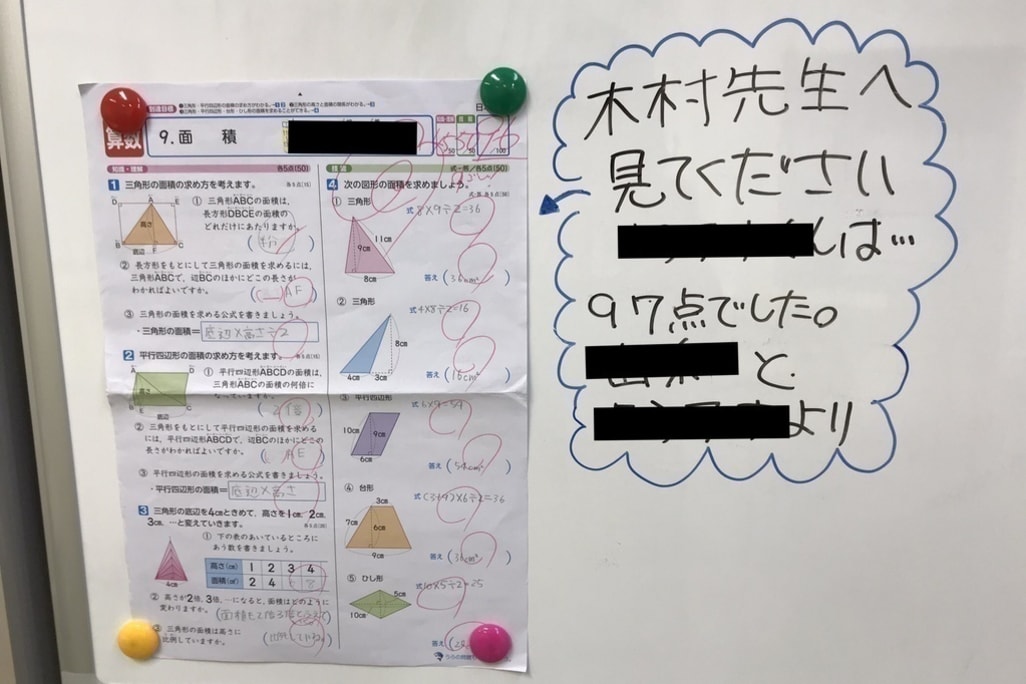 算数
9.面 積
到達目標
知識・理解
各5点(50)
1 三角形の面積の求め方を考えます。
各5点(15)
D A E
高さ
B F C
底辺
① 三角形ABCの面積は、
長方形DBCEの面積の
どれだけにあたりますか。
② 長方形をもとにして三角形の面積を求めるには、
三角形ABCで、辺BCのほかにどこの長さが
わかればよいですか。
AF
③ 三角形の面積を求める公式を書きましょう。
・三角形の面積=底辺×高さ÷2
2 平行四辺形の面積の求め方を考えます。
各5点(15)
A D
高さ
B E C
底辺
① 平行四辺形ABCDの面積は、
三角形ABCの面積の何倍に
なっていますか。
(2倍)
② 三角形をもとにして平行四辺形の面積を求める
には、平行四辺形ABCDで、辺BCのほかにどこの
長さがわかればよいですか。
E
③ 平行四辺形の面積を求める公式を書きましょう。
・平行四辺形の面積=底辺×高さ
3 三角形の底辺を4cmときめて、高さを1cm、2cm、
3cm、…と変えていきます。
各5点(20)
4cm
① 下の表のあいているところに
あう数を書きましょう。
高さ(cm) 1 2 3 4
面積(㎠) 2 4 6 8
② 高さが2倍、3倍、…になると、面積はどのように
変わりますか。
③ 三角形の面積は高さに
比例していますか。
(比例している。)
技能
式・答／各5点(50)
4 次の図形の面積を求めましょう。
① 三角形
式 8×9÷2=36
11cm
9cm
8cm
答え(36cm²)
② 三角形
式 4×8÷2=16
8cm
4cm 3cm
答え(16cm²)
③ 平行四辺形
式 6×9=54
10cm
9cm
6cm
答え(54cm²)
④ 台形
式 (3+9)×6÷2=36
3cm
7cm
6cm
9cm
答え(36cm²)
⑤ ひし形
式 10×5÷2=25
5cm
10cm
答え
木村先生へ
見てください
んは…
97点でした。
と
より